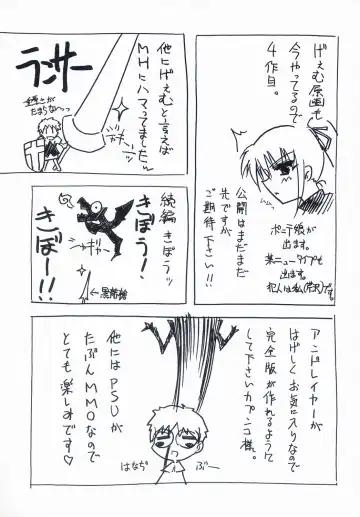 げぇむ原画も
今やってるので
4作目。
公開はまだまだ
先ですが
ご期待下さい!!
ポニテ娘が
出ます。
某ニュータイプも
出ます。
犯人は私
他にげぇむと言えば
MHにハマってました。
ランサー
たまらな〜っ
続編きぼうッ
きぼう!
きぼー!!
ギャー
←黒
アンドレイヤーが
はげしくお気に入りなので
完全版が作れるように
して下さいカプンコ様。
他にはPSUが
たぶんMMOなので
とても楽しみです♡
はなぢ
ぶー